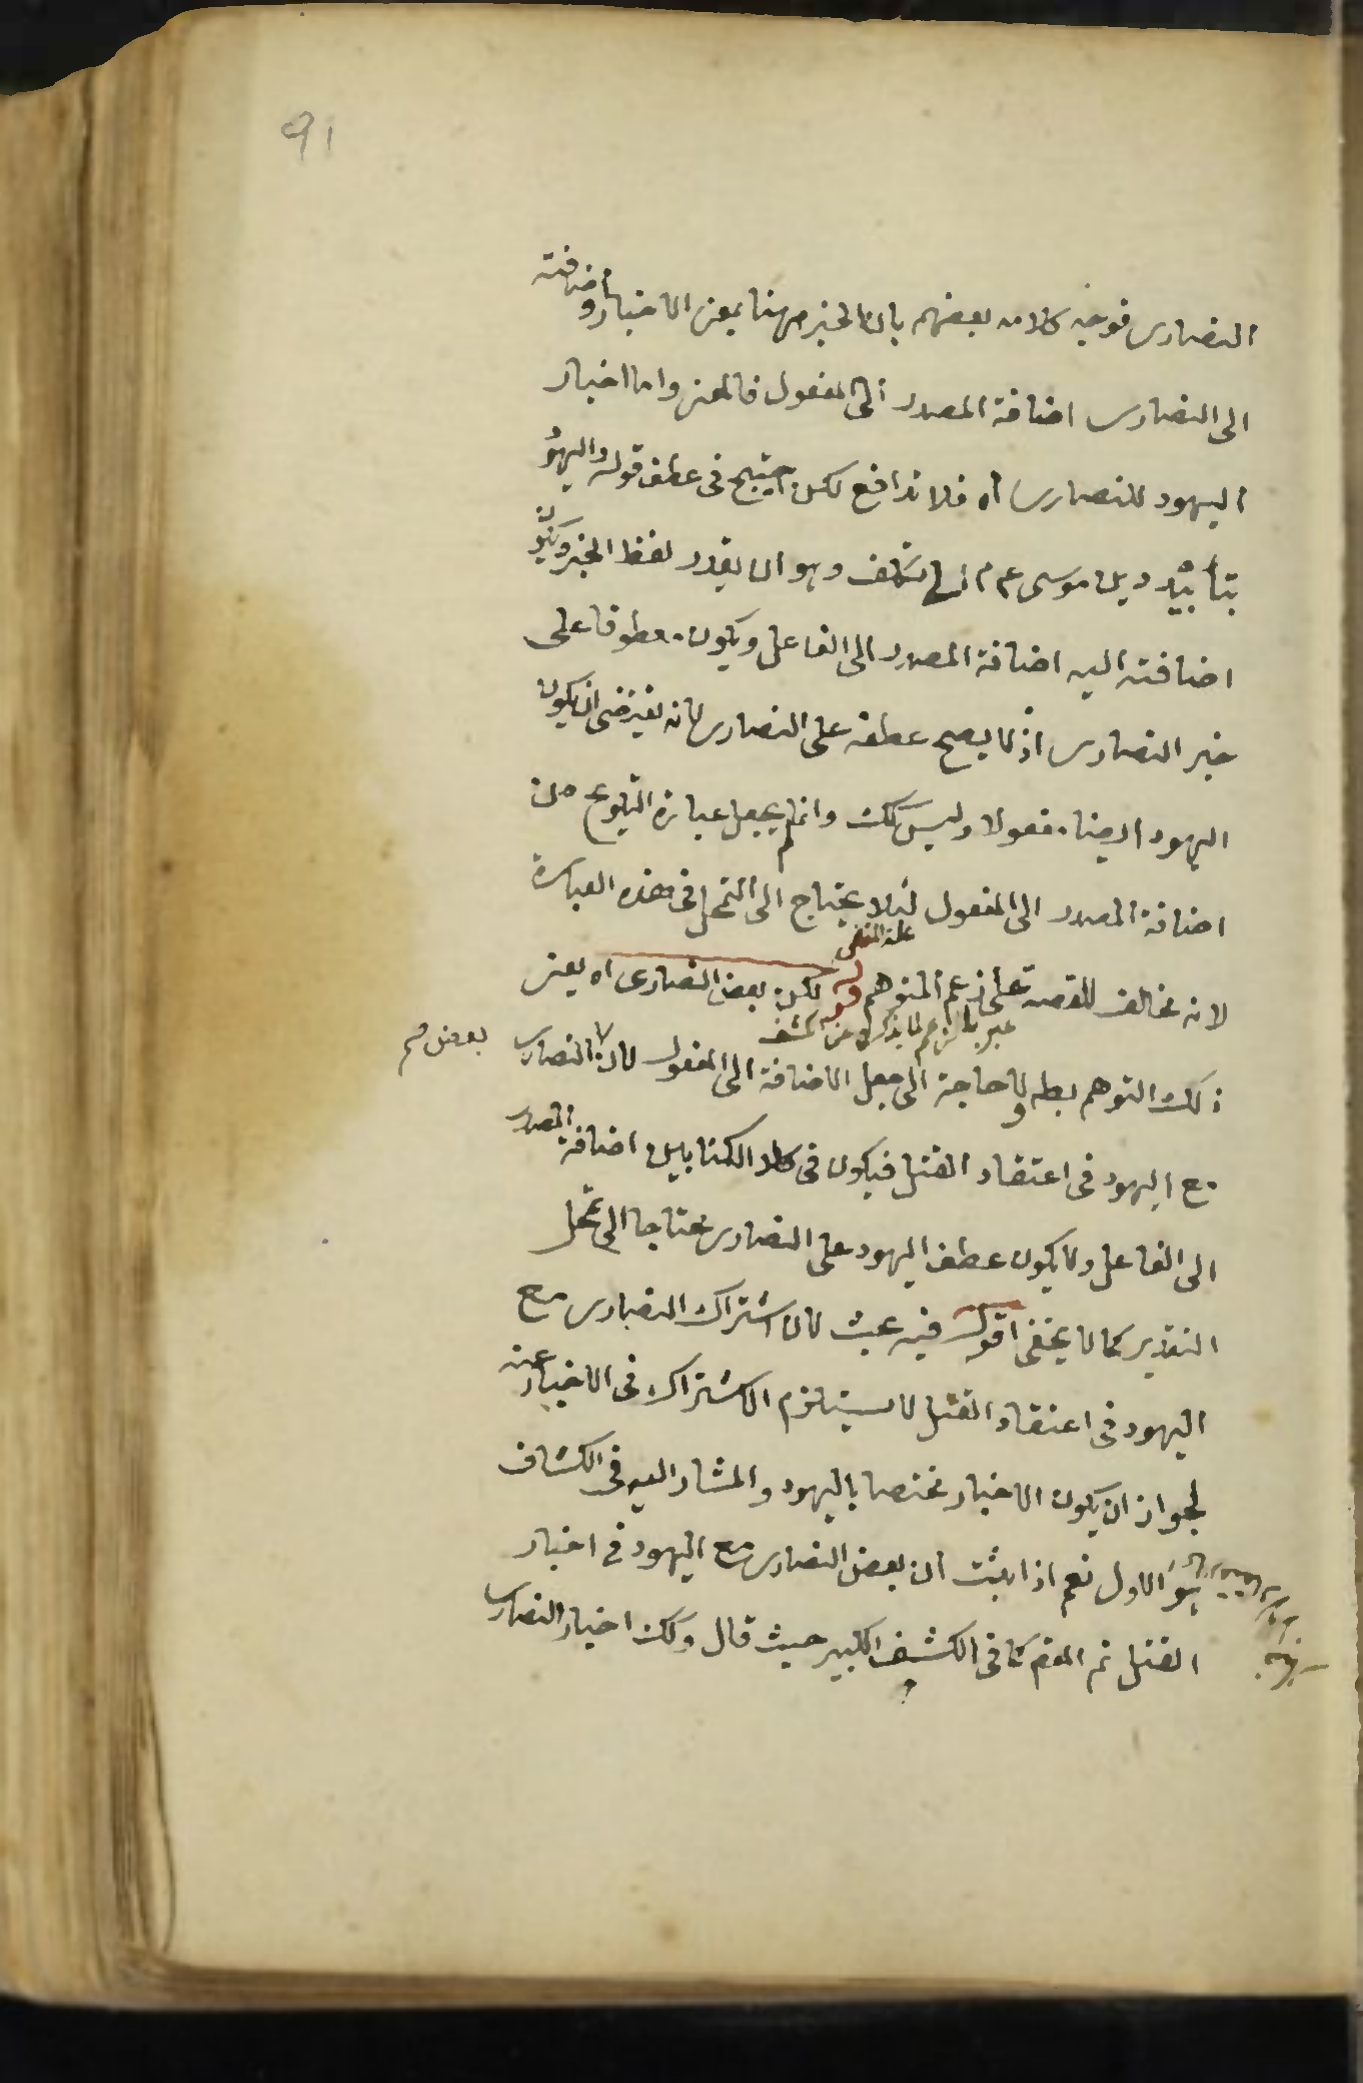 91
النصارى فوجه كلامه بعضهم بان الخبر مهنا بمعنى الاخبار واضافته
الى النصارى اضافة المصدر الى المفعول فالمعنى واما اخبار
اليهود للنصارى اه فلا تدافع لكن احتيج فى عطف قوله واليهود
بتأبيد دين موسى عم الى تكلف وهو ان يقدر لفظ الخبر ويكون
اضافته اليه اضافة المصدر الى الفاعل ويكون معطوفا على
خبر النصارى اذ لا يصح عطفه على النصارى لانه يقتضى ان يكون
اليهود ايضا مفعولا وليس كك وانما يجعل عبارة التلويح من
اضافة المصدر الى المفعول لئلا يحتاج الى التمحل فى هذه العبارة
علة المنفى
لانه مخالف للقصة على زعم المتوهم قوله لكن بعض النصارى اه يعنى
عبر بالزعم لما يذكره عن كشف
ذلك التوهم بط ولا حاجة الى جعل الاضافة الى المفعول لان النصارى
بعض صح
مع اليهود فى اعتقاد القتل فيكون فى كلا الكتابين اضافة المصدر
الى الفاعل ولا يكون عطف اليهود على النصارى محتاجا الى تمحل
التقدير كما لا يخفى اقول فيه بحث لان اشتراك النصارى مع
اليهود فى اعتقاد القتل لا يستلزم الاشتراك فى الاخبار عنه
لجواز ان يكون الاخبار مختصا باليهود والمشار اليه فى الكشاف
هو الاول نعم اذا يثبت ان بعض النصارى مع اليهود فى اخبار
القتل تم المقم كما فى الكشف الكبير حيث قال وكك اخبار النصارى